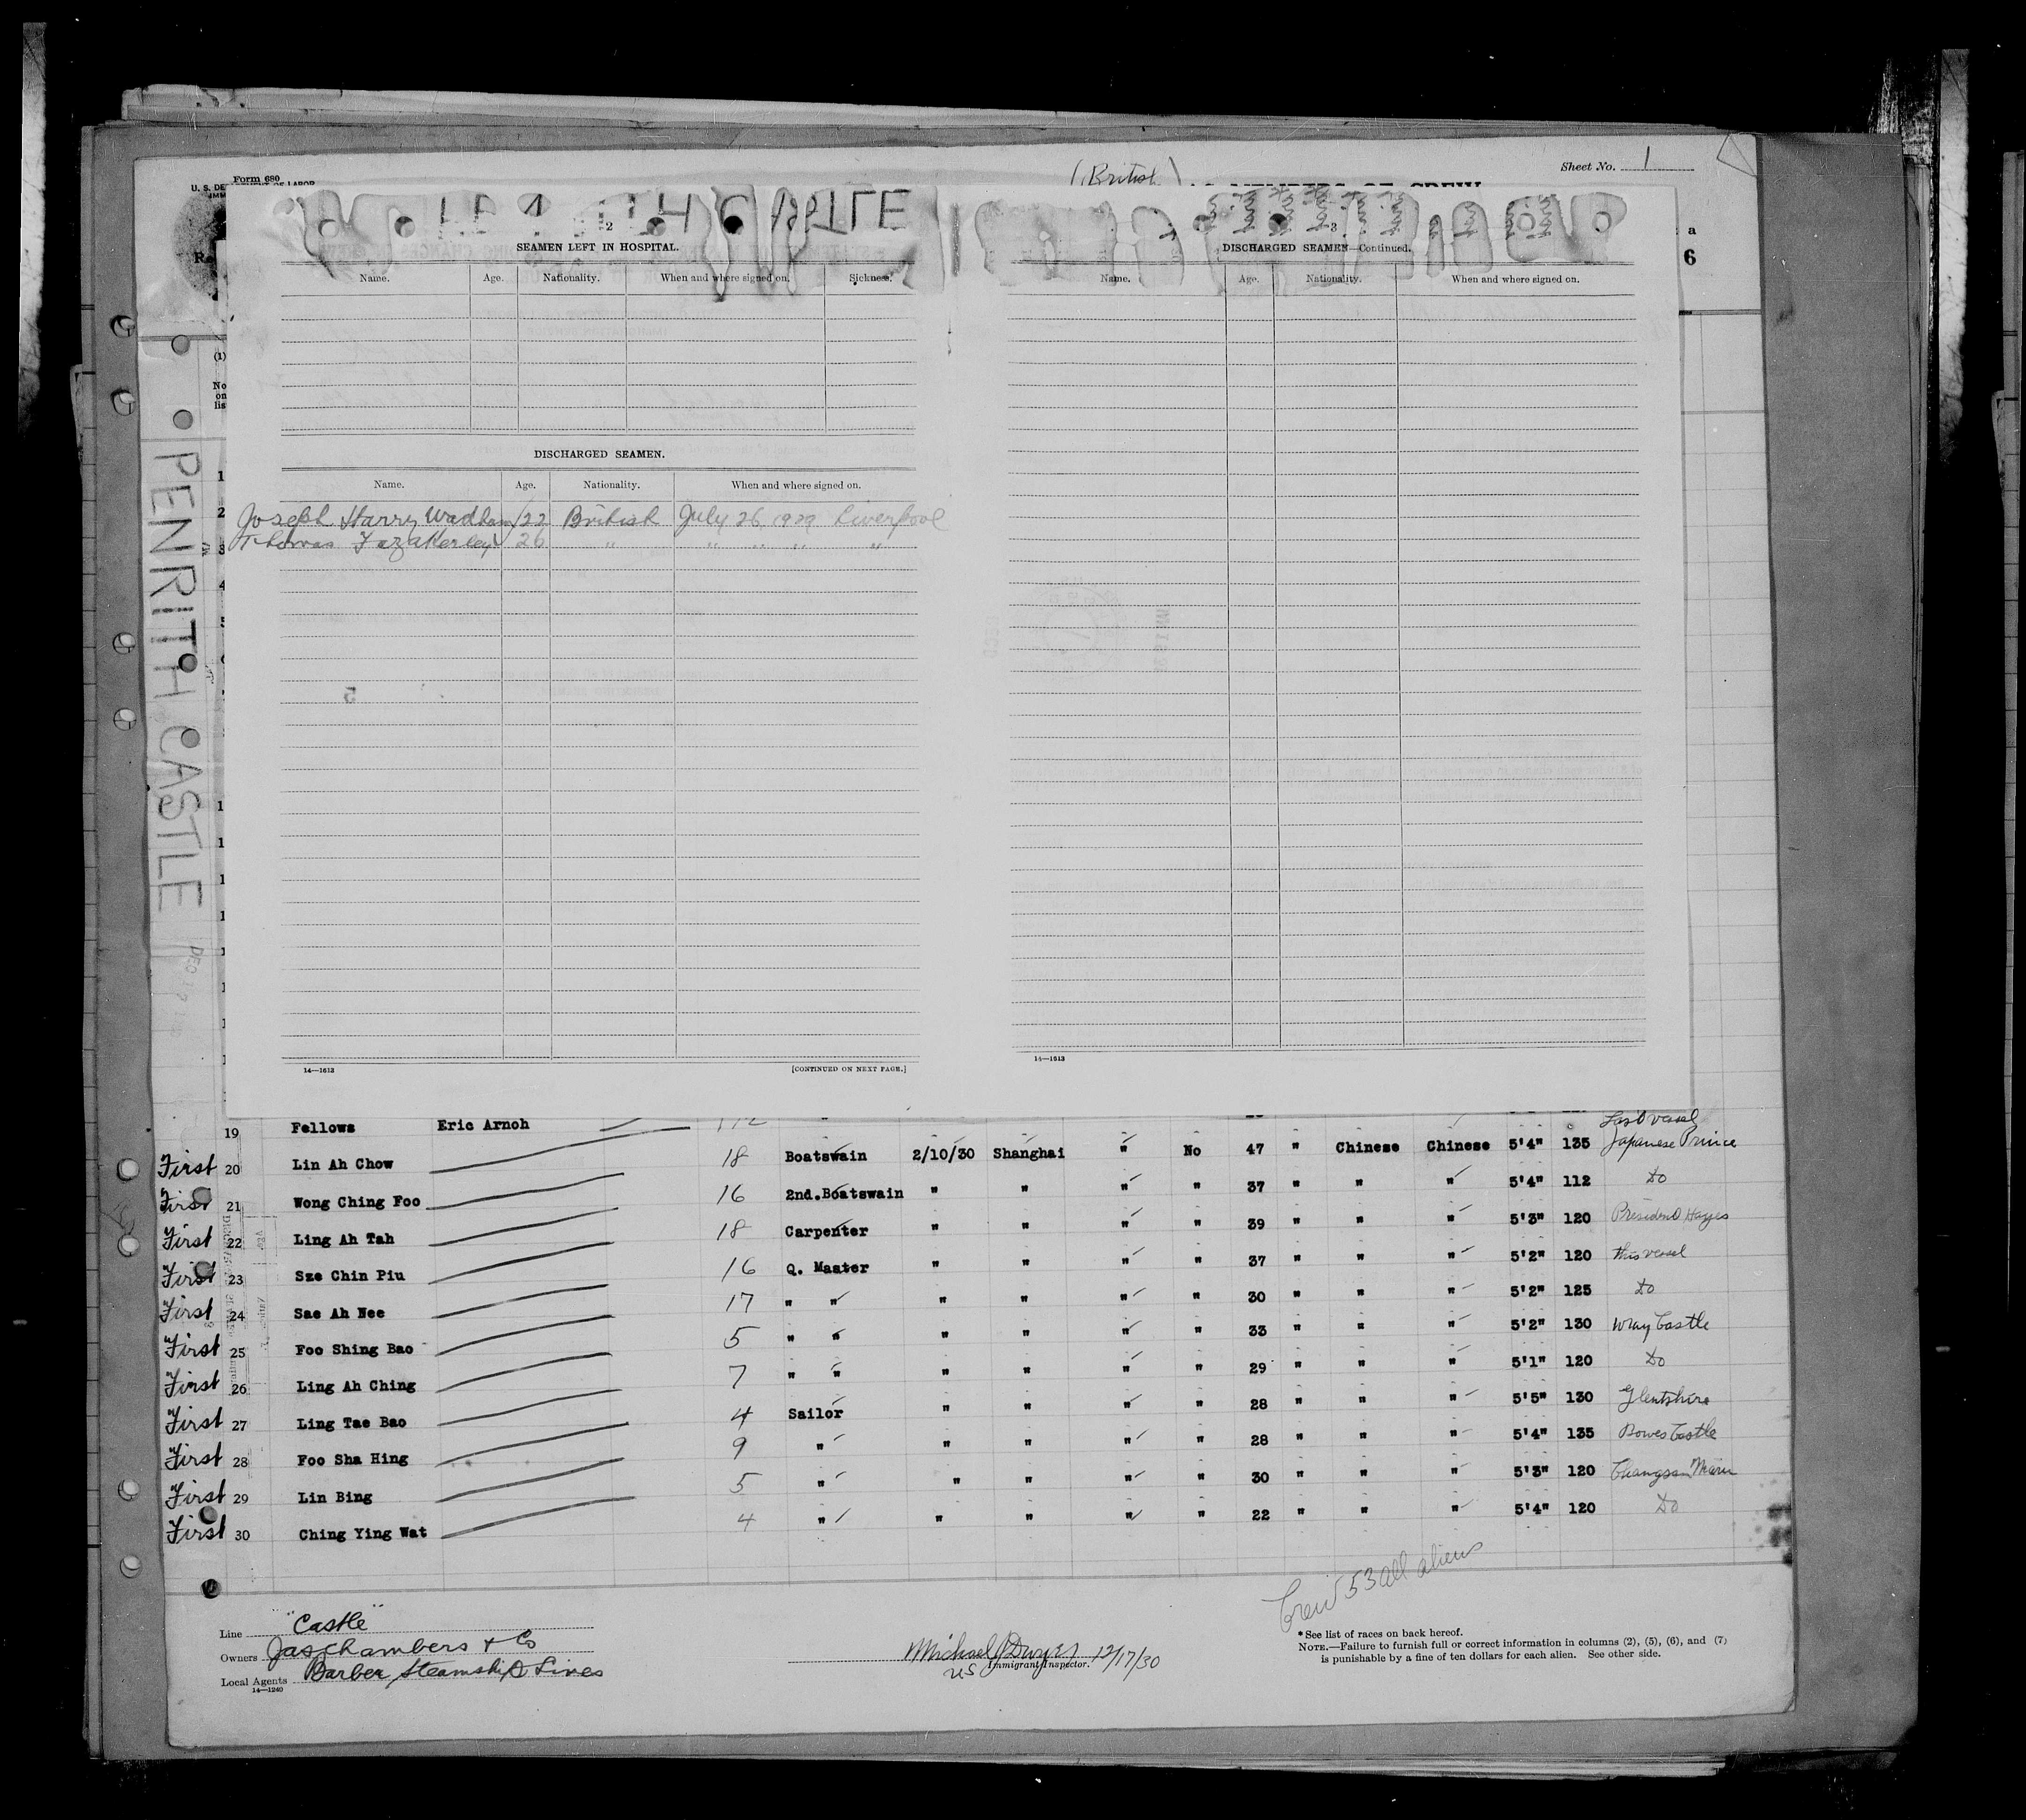 Form 680
(British)
Sheet No. 1
U. S. DE
2
SEAMEN LEFT IN HOSPITAL.
Name. Age. Nationality. When and where signed on. Sickness.
DISCHARGED SEAMEN.
Name. Age. Nationality. When and where signed on.
Joseph Harry Wadham 22 British July 26 1929 Liverpool
Thomas Fazakerley 26 " " " " "
14—1613 [CONTINUED ON NEXT PAGE.]
3
DISCHARGED SEAMEN—Continued.
Name. Age. Nationality. When and where signed on.
14—1613
a
6
PENRITH CASTLE
19 Fellows Eric Arnoh
Last vessel
First 20 Lin Ah Chow 18 Boatswain 2/10/30 Shanghai " No 47 " Chinese Chinese 5'4" 135 Japanese Prince
First 21 Wong Ching Foo 16 2nd.Boatswain " " " " 37 " " " 5'4" 112 Do
First 22 Ling Ah Tah 18 Carpenter " " " " 39 " " " 5'3" 120 President Hayes
First 23 Sze Chin Piu 16 Q. Master " " " " 37 " " " 5'2" 120 this vessel
First 24 Sae Ah Nee 17 " " " " " " 30 " " " 5'2" 125 Do
First 25 Foo Shing Bao 5 " " " " " " 33 " " " 5'2" 130 Wray Castle
First 26 Ling Ah Ching 7 " " " " " " 29 " " " 5'1" 120 Do
First 27 Ling Tae Bao 4 Sailor " " " " 28 " " " 5'5" 130 Glentshire
First 28 Foo Sha Hing 9 " " " " " 28 " " " 5'4" 135 Bowes Castle
First 29 Lin Bing 5 " " " " " 30 " " " 5'3" 120 Changsam Maru
First 30 Ching Ying Wat 4 " " " " " 22 " " " 5'4" 120 Do
Crew 53 all aliens
Line "Castle"
Owners Jas Chambers & Co
Local Agents Barber Steamship Lines
14—1240
Michael J Dwyer 12/17/30
US Immigrant Inspector.
* See list of races on back hereof.
NOTE.—Failure to furnish full or correct information in columns (2), (5), (6), and (7)
is punishable by a fine of ten dollars for each alien. See other side.